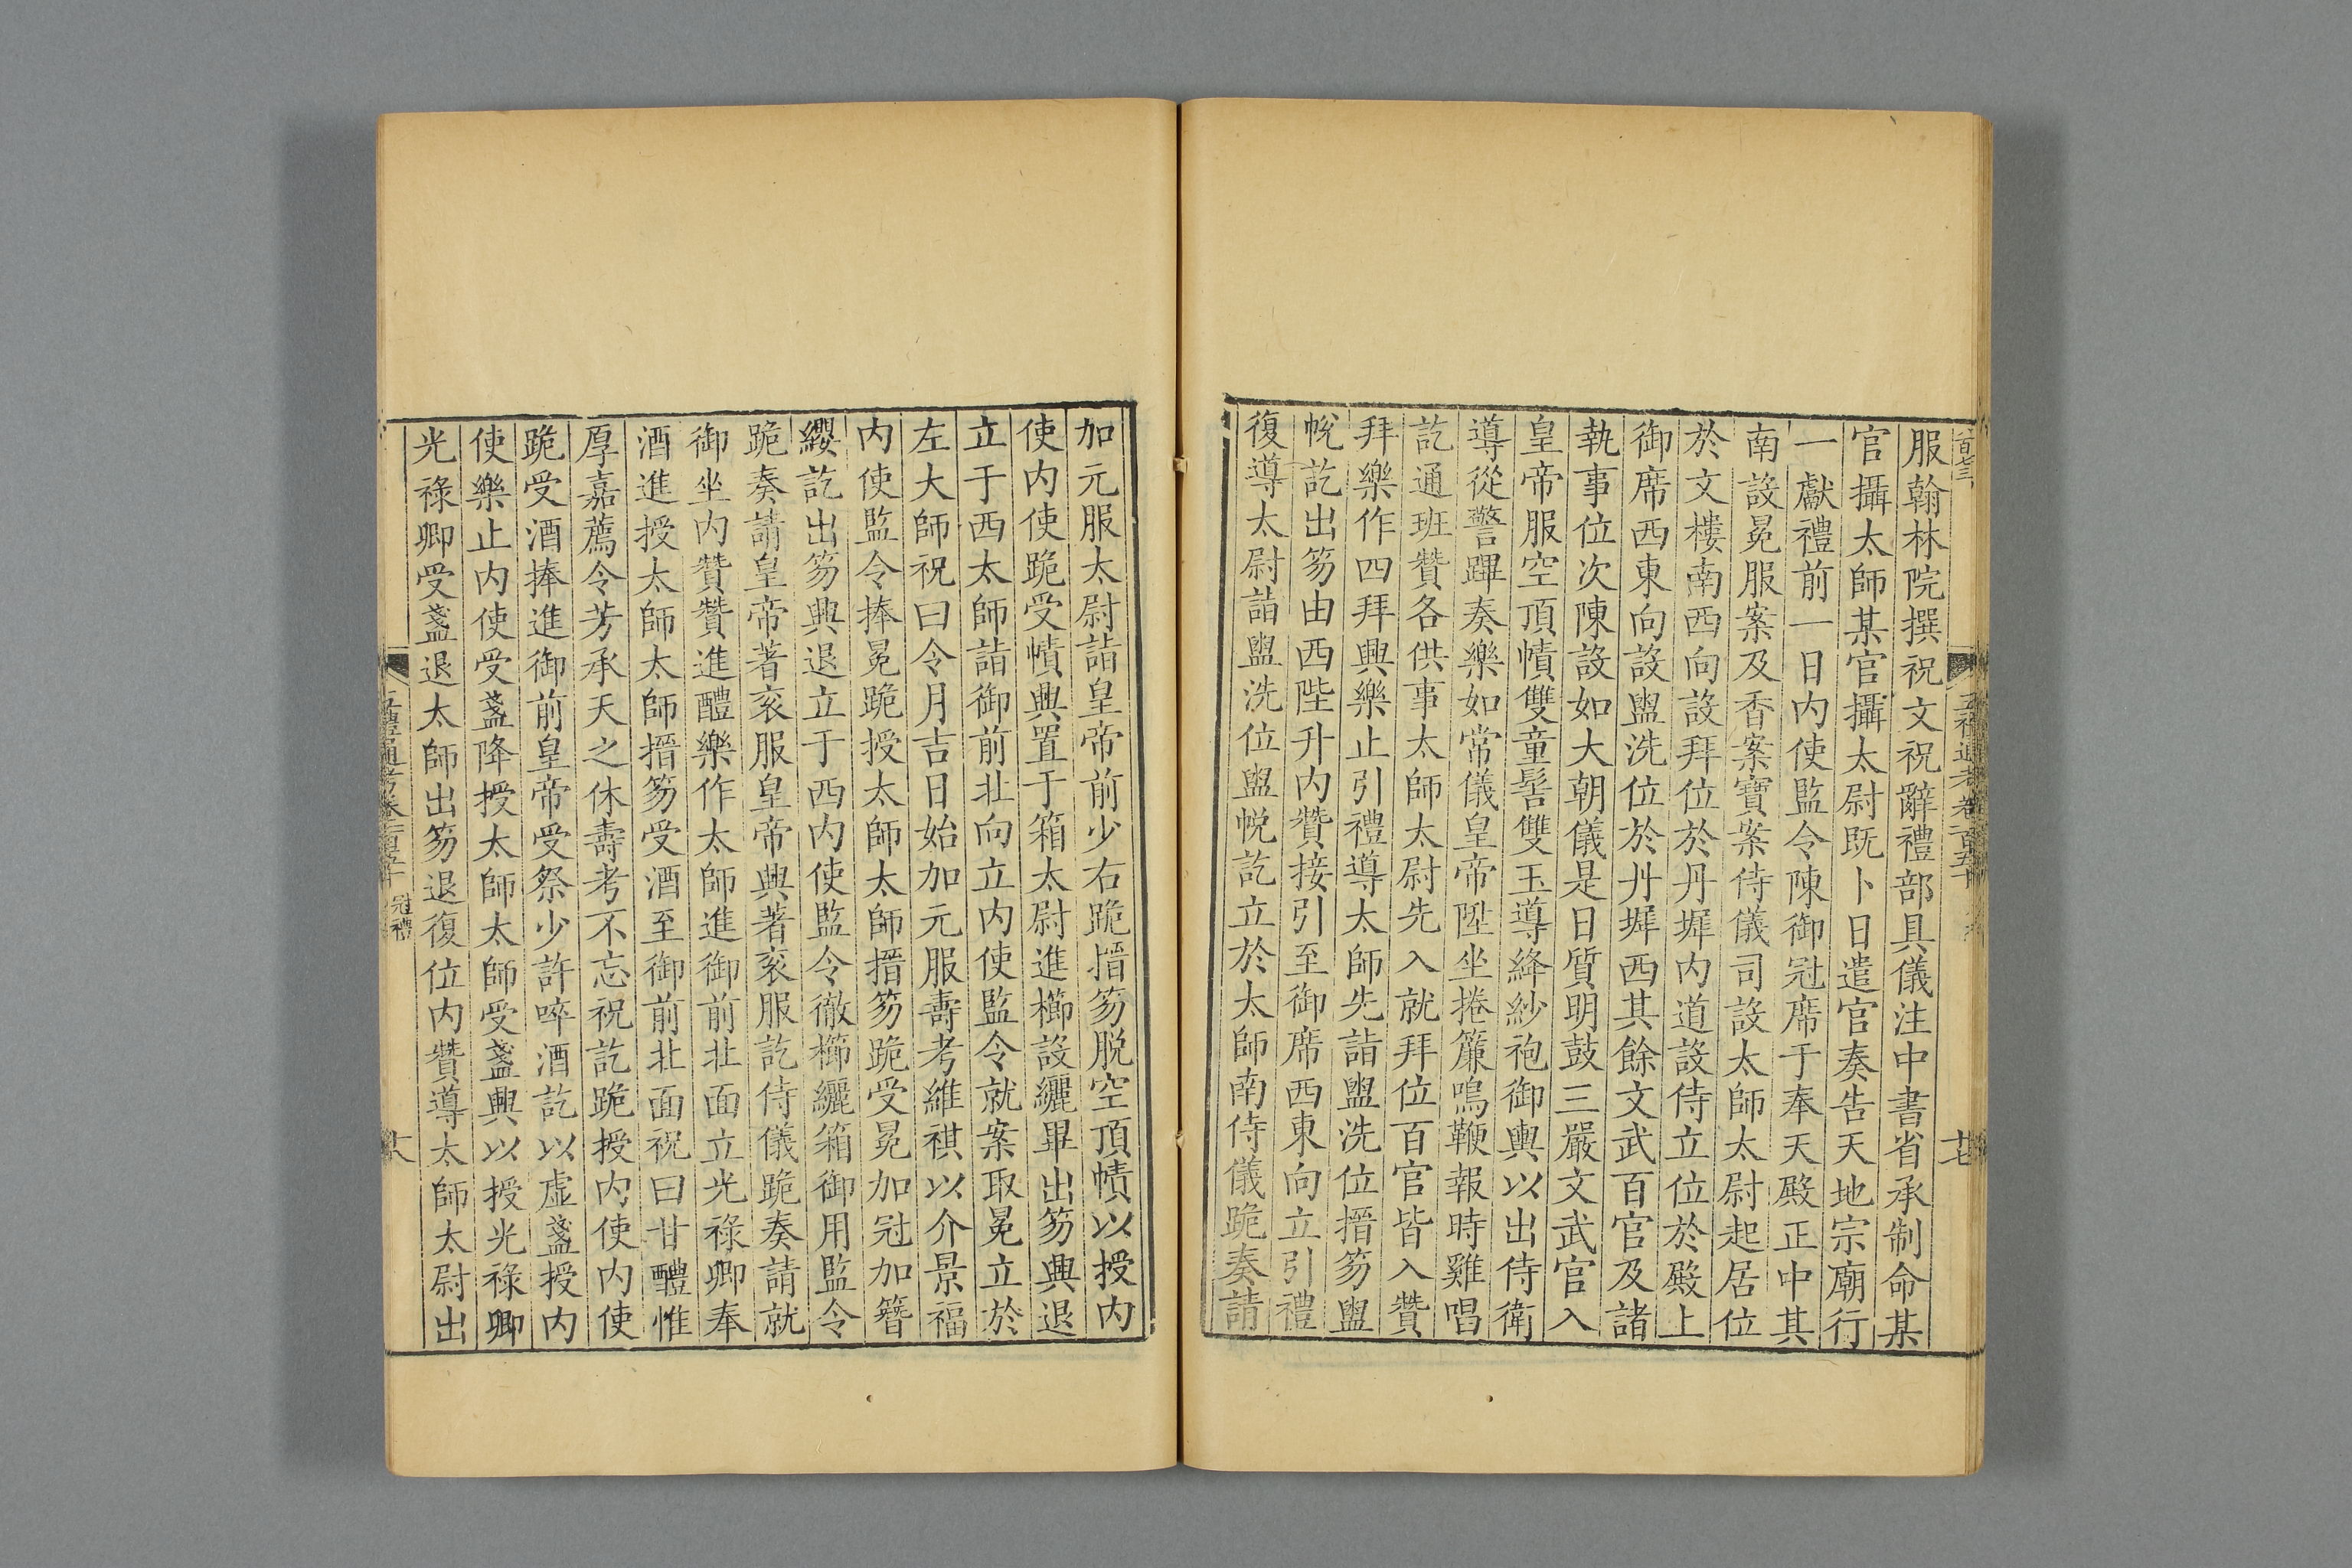 服翰林院撰祝文祝辭禮部具儀注中書省承制命某
官攝太師某官攝太尉既卜日遣官奏告天地宗廟行
一獻禮前一日内使監令陳御冠席于奉天殿正中其
南設冕服案及香案寶案侍儀司設太師太尉起居位
於文樓南西向設拜位於丹墀内道設侍立位於殿上
御席西東向設盥洗位於丹墀西其餘文武百官及諸
執事位次陳設如大朝儀是日質明鼓三嚴文武官入
皇帝服空頂幘雙童髻雙玉導絳紗袍御輿以出侍衛
導從警蹕奏樂如常儀皇帝陞坐捲簾鳴鞭報時雞唱
訖通班贊各供事太師太尉先入就拜位百官皆入贊
拜樂作四拜興樂止引禮導太師先詣盥洗位搢笏盥
帨訖出笏由西陛升内贊接引至御席西東向立引禮
復導太尉詣盥洗位盥帨訖立於太師南侍儀跪奏請
加元服太尉詣皇帝前少右跪搢笏脱空頂幘以授内
使内使跪受幘興置于箱太尉進櫛設纚畢出笏興退
立于西太師詣御前北向立内使監令就案取冕立於
左大師祝曰令月吉日始加元服壽考維祺以介景福
内使監令捧冕跪授太師太師搢笏跪受冕加冠加簪
纓訖出笏興退立于西内使監令徹櫛纚箱御用監令
跪奏請皇帝著衮服皇帝興著衮服訖侍儀跪奏請就
御坐内贊贊進醴樂作太師進御前北面立光祿卿奉
酒進授太師太師搢笏受酒至御前北面祝曰甘醴惟
厚嘉薦令芳承天之休壽考不忘祝訖跪授内使内使
跪受酒捧進御前皇帝受祭少許啐酒訖以虛盞授内
使樂止内使受盞降授太師太師受盞興以授光祿卿
光祿卿受盞退太師出笏退復位内贊導太師太尉出
冠禮